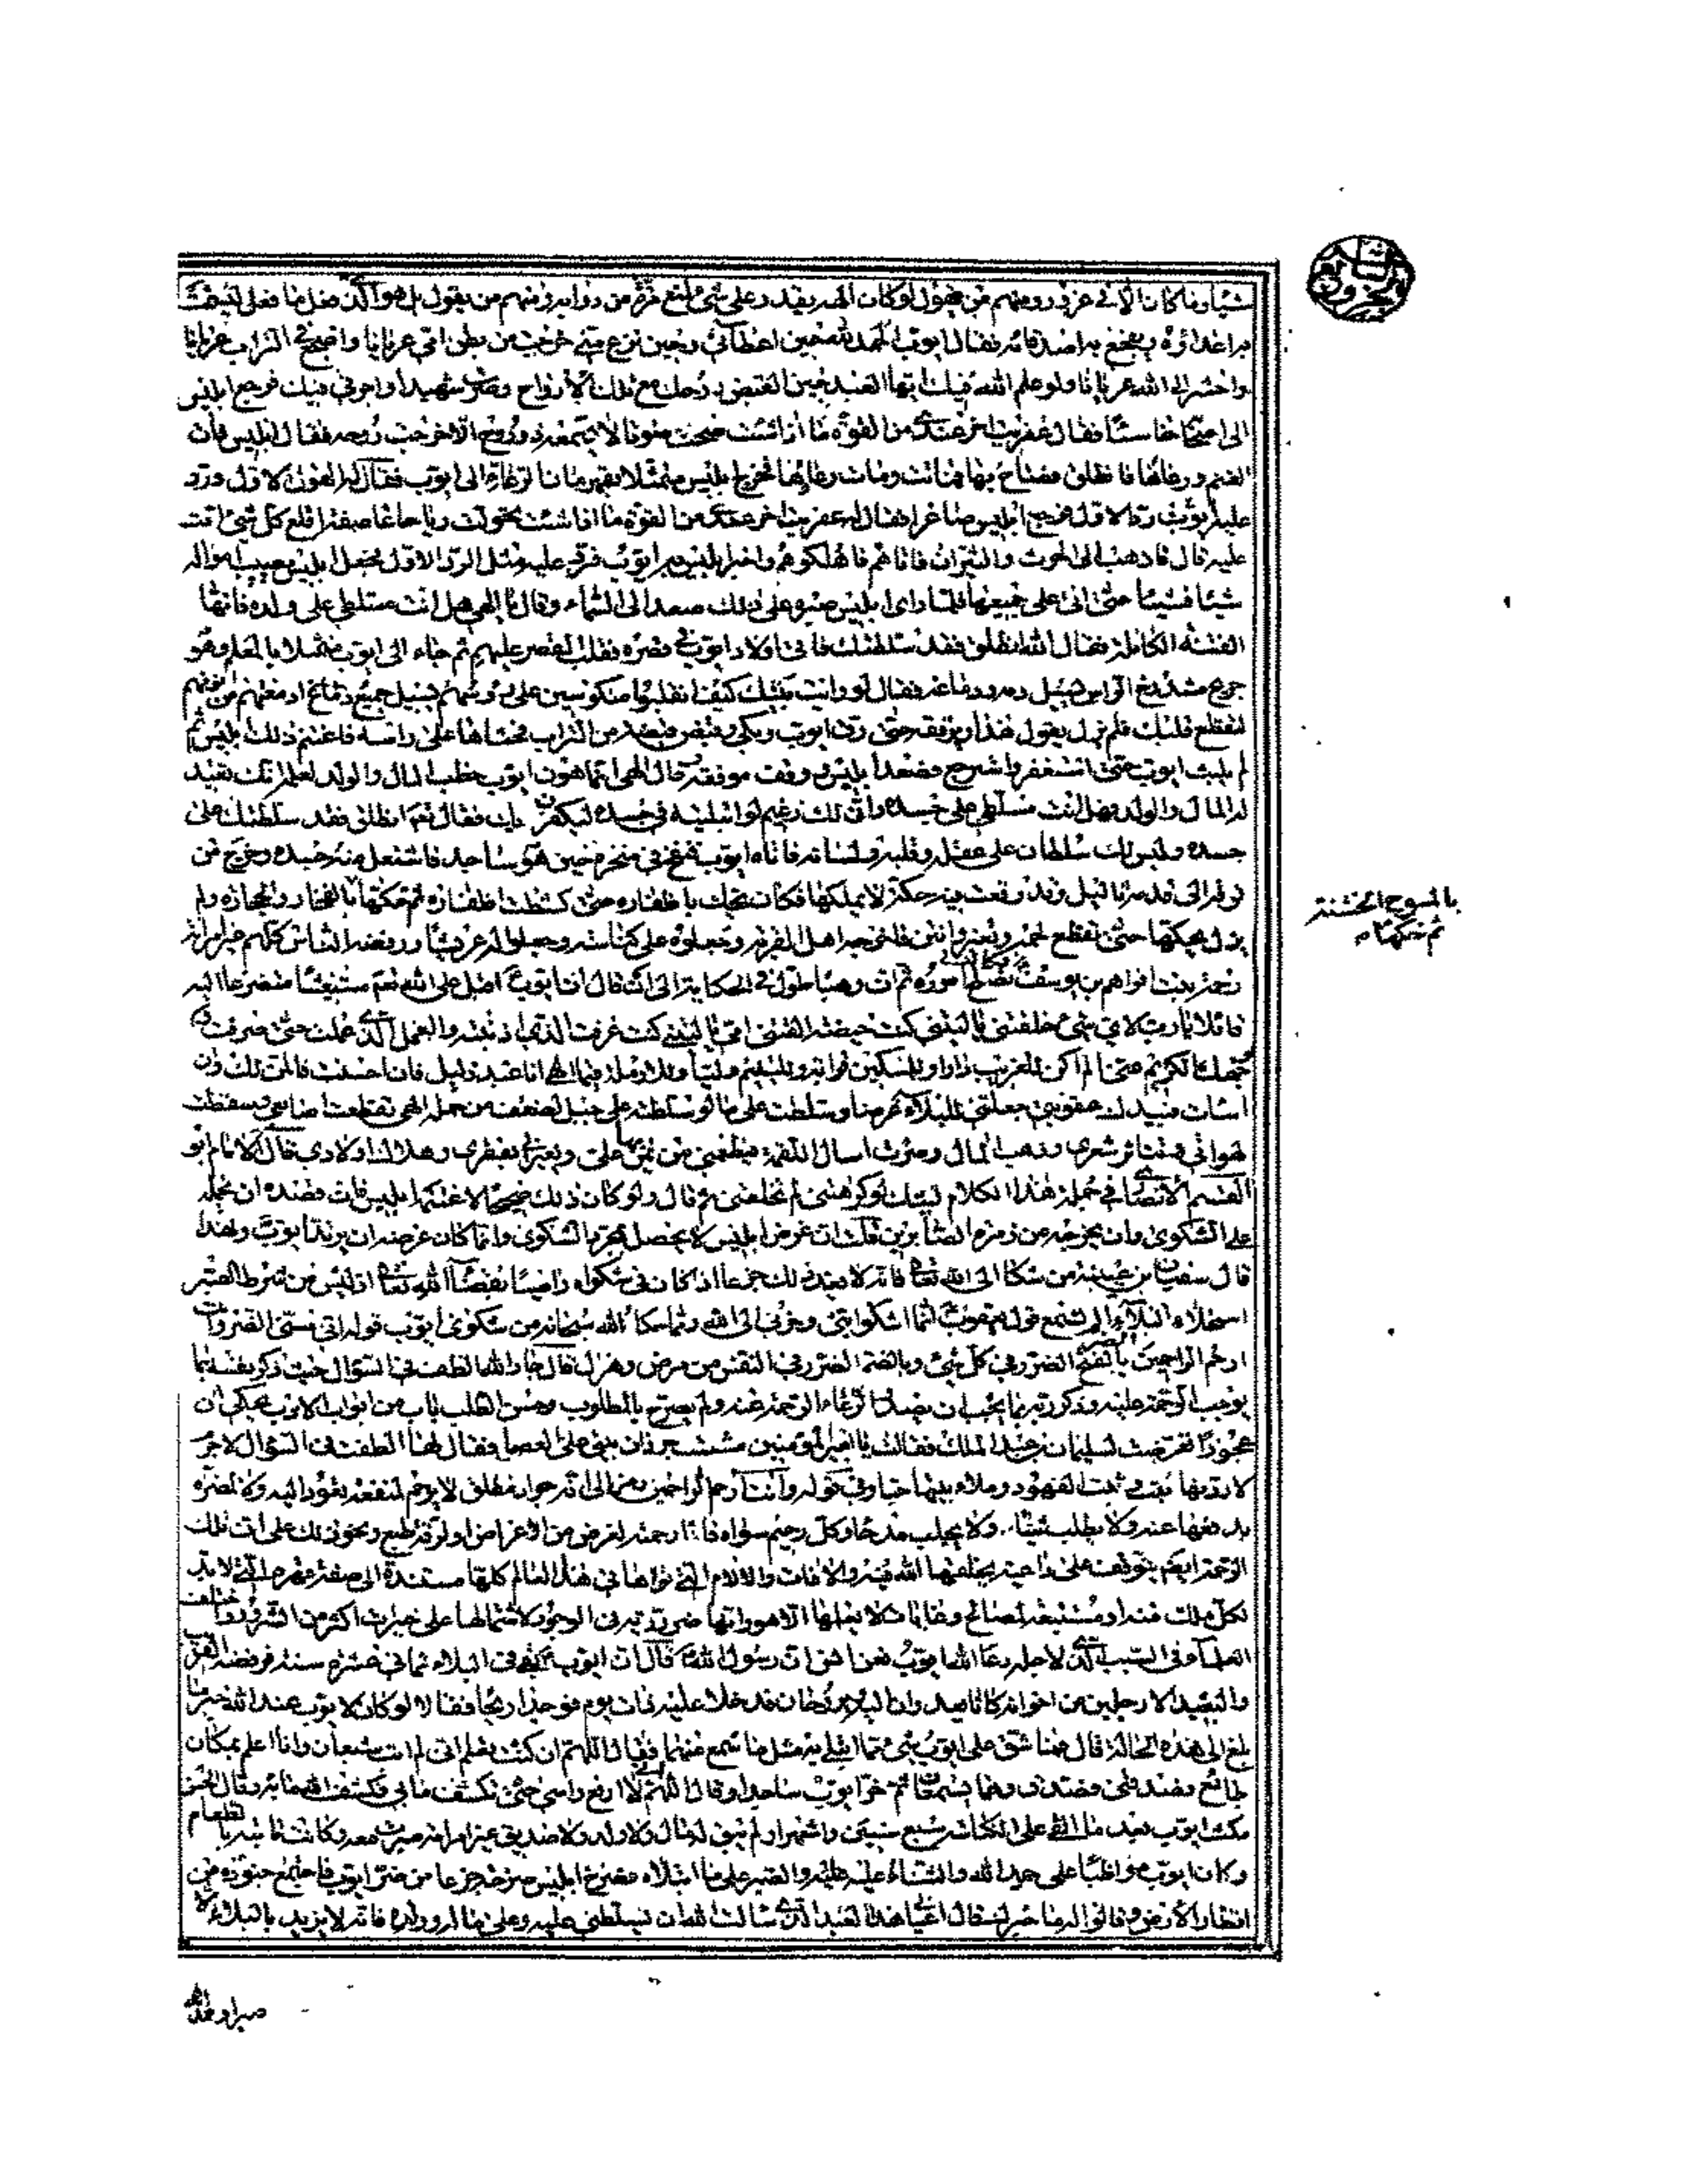 شيئا وما كان الا في غرور ومنهم من يقول لو كان اله يقدر على شئ لمنع من دوابه ومنهم من يقول بل هو الذي فعل ما فعل ليشمت
به اعداؤه ويفجع به اصدقائه فقال ايوب الحمد لله حين اعطاني وحين نزع مني خرجت من بطن امي عريانا واضجع في التراب عريانا
واحشر الى الله عريانا ولو علم الله فيك ايها العبد خيرا لقبض روحك مع تلك الارواح وصرت شهيدا واجرني فيك فرجع ابليس
الى اصحابه خاسئا فقال عفريت اخر عندي من القوة ما اذا شئت صحت صوتا لا يسمعه ذو روح الا خرجت روحه فقال ابليس فأت
الغنم ورعائها فانطلق فصاح بها فماتت ومات رعائها فخرج ابليس متمثلا بقهرمان الرعاة الى ايوب فقال له القول الاول ورد
عليه ايوب رد الاول فرجع ابليس صاغرا فقال له عفريت اخر عندي من القوة ما اذا شئت تحولت ريحا عاصفة اقلع كل شئ اتيت
عليه قال فاذهب الى الحرث والثيران فاتاهم فاهلكوهم واخبر ابليس به ايوب فرد عليه مثل الرد الاول فجعل ابليس يصيب امواله
شيئا فشيئا حتى اتى على جميعها فلما راى ابليس صبره على ذلك صعد الى السماء وقال يا الهي هل انت مسلطي على ولده فانها
الفتنة الكاملة فقال الله انطلق فقد سلطتك فاتى اولاد ايوب في قصره فقلب القصر عليهم ثم جاء الى ايوب متمثلا بالمعلم وهو
جريح مشدوخ الراس يسيل دمه ودماغه فقال لو رايت بنيك كيف انقلبوا منكوسين على رؤسهم يسيل جميع دماغ ادمغتهم من انوفهم
لتقطع قلبك فلم يزل يقول هذا ويرققه حتى رق ايوب وبكى وقبض قبضة من التراب فحثاها على راسه فاغتنم ذلك ابليس ثم
لم يلبث ايوب حتى استغفر واسترجع فصعد ابليس ووقف موقفه وقال الهي انما هون ايوب خطب المال والولد لعلمه انك تعيد
له المال والولد فهل انت مسلطي على جسده واني لك زعيم لو ابتليته في جسده ليكفرن بك فقال تعالى انطلق فقد سلطتك على
جسده وليس لك سلطان على عقله وقلبه ولسانه فاتاه ايوب فنفخ في منخره حين هو ساجد فاشتعل منه جسده وخرج من
قرنه الى قدمه ثاليل وقد وقعت فيه حكة لا يملكها فكان يحك باظفاره حتى سقطت اظفاره ثم حكها بالفخار والحجارة ولم
بالمسوح الخشنة
ثم حكها م
يزل يحكها حتى تقطع لحمه وتغير وانتن فاخرجه اهل القرية وجعلوه على كناسة وجعلوا له عريشا ورفضه الناس كلهم غير امراته
رحمة بنت افراهم بن يوسف فكانت تصلح اموره ثم ان وهبا طول في الحكاية الى ان قال ان ايوب ع اقبل على الله تعالى مستغيثا متضرعا اليه
قائلا يا رب لاي شئ خلقتني يا ليتني كنت حيضة القتني امي يا ليتني كنت عرفت الذنب الذي اذنبته والعمل الذي عملت حتى صرفت
وجهك الكريم عني الم اكن للغريب دارا وللمسكين قرارا ولليتيم وليا وللارملة قيما الهي انا عبد ذليل فان احسنت فالمن لك وان
اسأت فبيدك عقوبتي جعلتني للبلاء غرضا وسلطت علي ما لو سلطته على جبل لضعف من حمله الهي تقطعت اصابعي وسقطت
لهواتي وتناثر شعري وذهب المال وصرت اسال اللقمة فيطعمني من يمن بها علي ويعيرني بفقري وهلاك اولادي قال الامام ابو
القسم الانصاري في جملة هذا الكلام ليتك لو كرهتني لم تخلقني ثم قال ولو كان ذلك صحيحا لاغتنمه ابليس فان قصده ان يحمله
على الشكوى وان يخرجه من زمرة الصابرين قلت ان غرض ابليس لا يحصل بمجرد الشكوى وانما كان غرضه ان يرتد ايوب ولهذا
قال سفيان بن عيينة من شكا الى الله تعالى فانه لا يعد ذلك جزعا اذا كان في شكواه راضيا بقضاء الله تعالى اذ ليس من شرط الصبر
استحلاء البلاء الم تسمع قول يعقوب انما اشكو بثي وحزني الى الله وما حكاه الله سبحانه من شكوى ايوب قوله اني مسني الضر وانت
ارحم الراحمين الضر بالفتح الضرر في كل شئ وبالضم الضرر في النفس من مرض وهزال قال جار الله الطف في السؤال حيث ذكر نفسه بما
يوجب الرحمة عليه وذكر ربه بما يجب ان يصدر الرحمة عنده ولم يصرح بالمطلوب وحسن الطلب باب من ابواب الادب يحكى ان
عجوزا تعرضت لسليمان بن عبد الملك فقالت يا امير المؤمنين مشت جرذان بيتي على العصا فقال لها الطفت في السؤال لا جرم
لاردنها تثب وثب الفهود وملاء بيتها حبا وفي قوله وانت ارحم الراحمين رمز الى انه جواد مطلق لا يرحم لمنفعة تعود اليه ولا لمضرة
يدفعها عنه ولا يطلب شيئا ولا يجلب مدحا وكل رحيم سواه فانما رحمته لغرض من الاغراض او لرقة طبع ونحو ذلك على ان تلك
الرحمة ايضا يتوقف على داعية يخلقها الله فيه والافات والالام التي نراها في هذا العالم كلها مستندة الى صفة قهره التي لا بد
لكل ملك منه او مستتبعة لمصالح وغايات لا يعلمها الا هو وانها ضرورية في الوجود لاشتمالها على خيرات اكثر من الشرور واختلف
العلماء في السبب الذي لاجله دعا الله ايوب فعن انس ان رسول الله ص قال ان ايوب بقي في البلاء ثماني عشرة سنة فرفضه القريب
والبعيد الا رجلين من اخوانه كانا يغدوان اليه ويروحان قد دخلا عليه ذات يوم فوجدا ريحا فقالا لو كان لايوب عند الله خير ما
بلغ الى هذه الحالة قال فما شق على ايوب شئ مما ابتلي به مثل ما سمع منهما فقال اللهم ان كنت تعلم اني لم ابت شبعان وانا اعلم بمكان
جائع فصدقني فصدق وهما يسمعان ثم خر ايوب ساجدا وقال اللهم لا ارفع راسي حتى تكشف ما بي فكشف الله ما به وقال الحسن
مكث ايوب بعد ما القي على الكناسة سبع سنين واشهرا ولم يبق له مال ولا ولد ولا صديق غير امراته صبرت معه وكانت تاتيه بالطعام
وكان ايوب مواظبا على حمد الله والثناء عليه والصبر على ما ابتلاه فصرخ ابليس صرخة جزعا من صبر ايوب فاجتمع جنوده من
اقطار الارض وقالوا له ما خبرك قال اعياني هذا العبد الذي سالت الله ان يسلطني عليه وعلى ماله وولده فانه لا يزيد بالبلاء الا
صبرا وحمدا لله